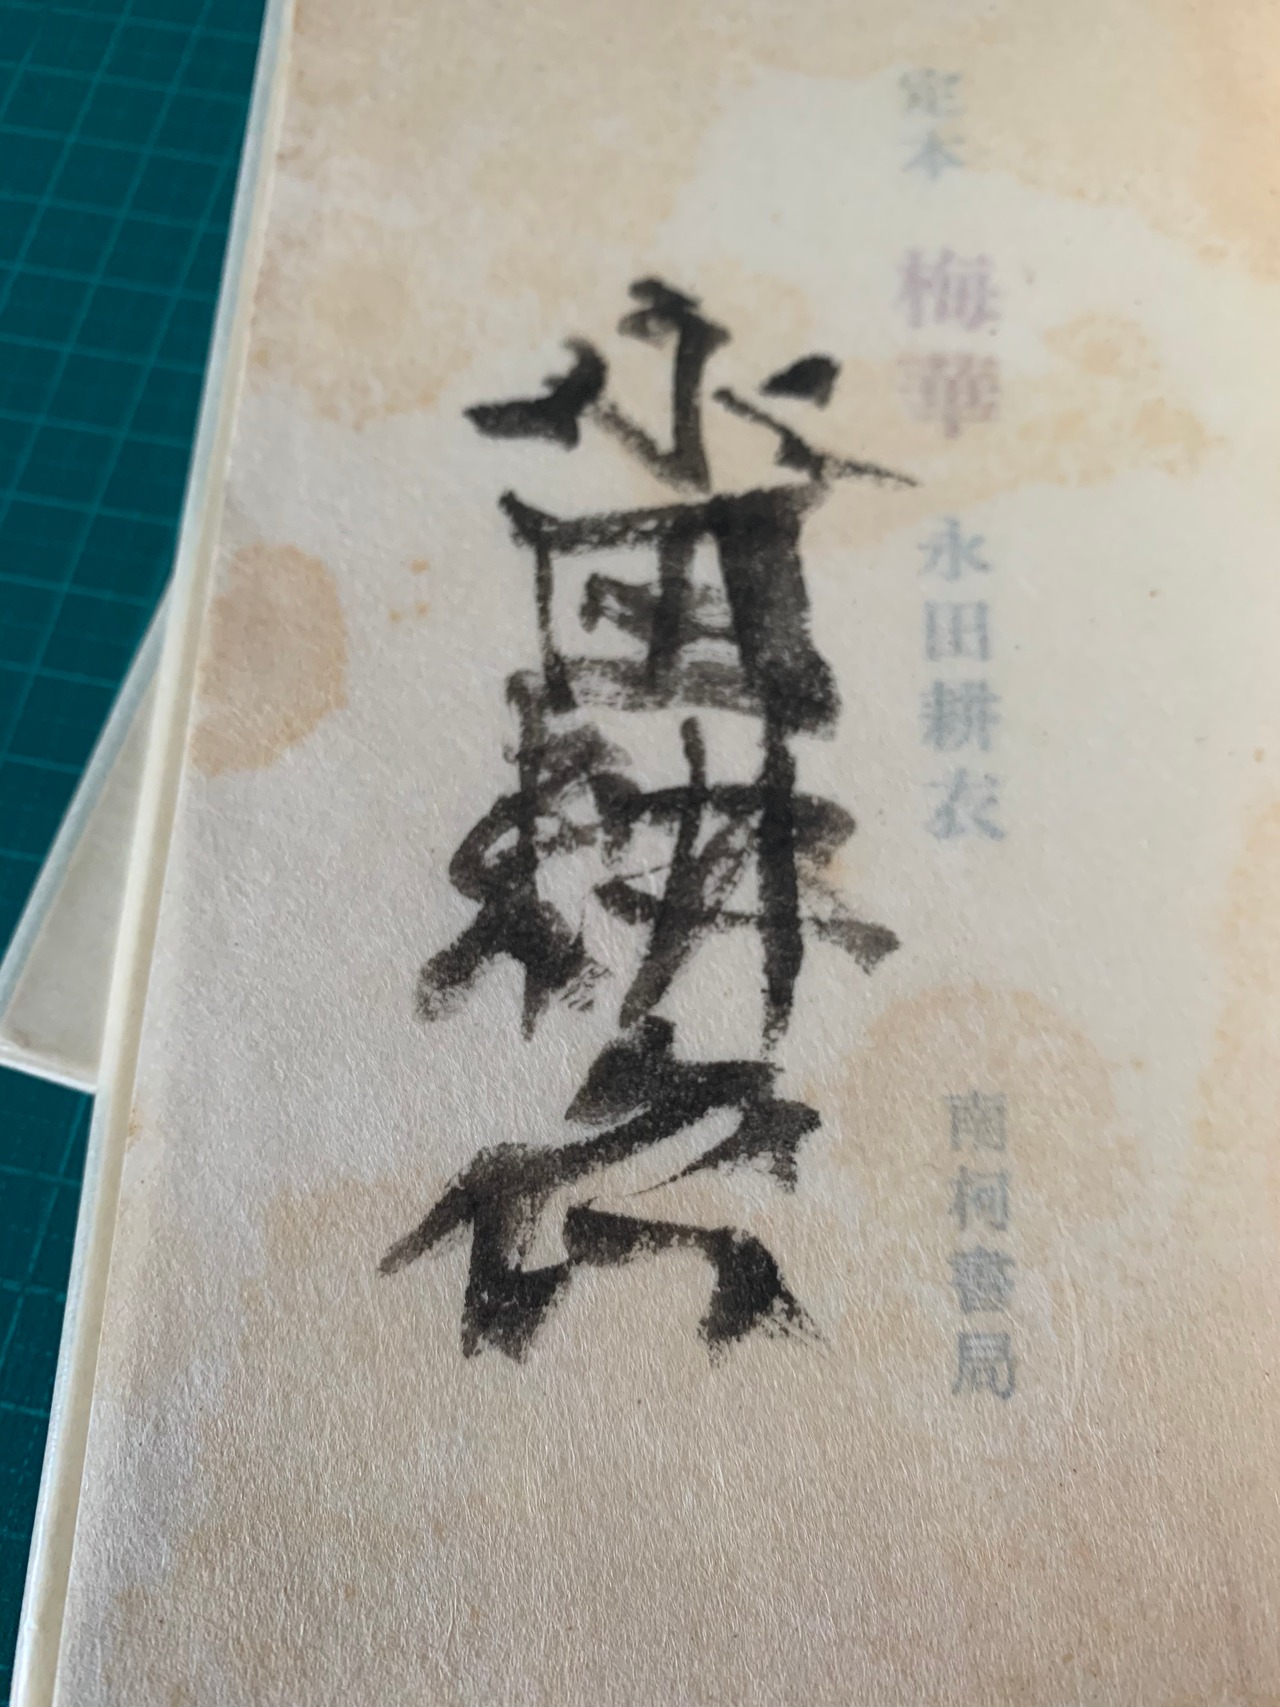 定本 梅華 永田耕衣 南柯書局
永田耕衣